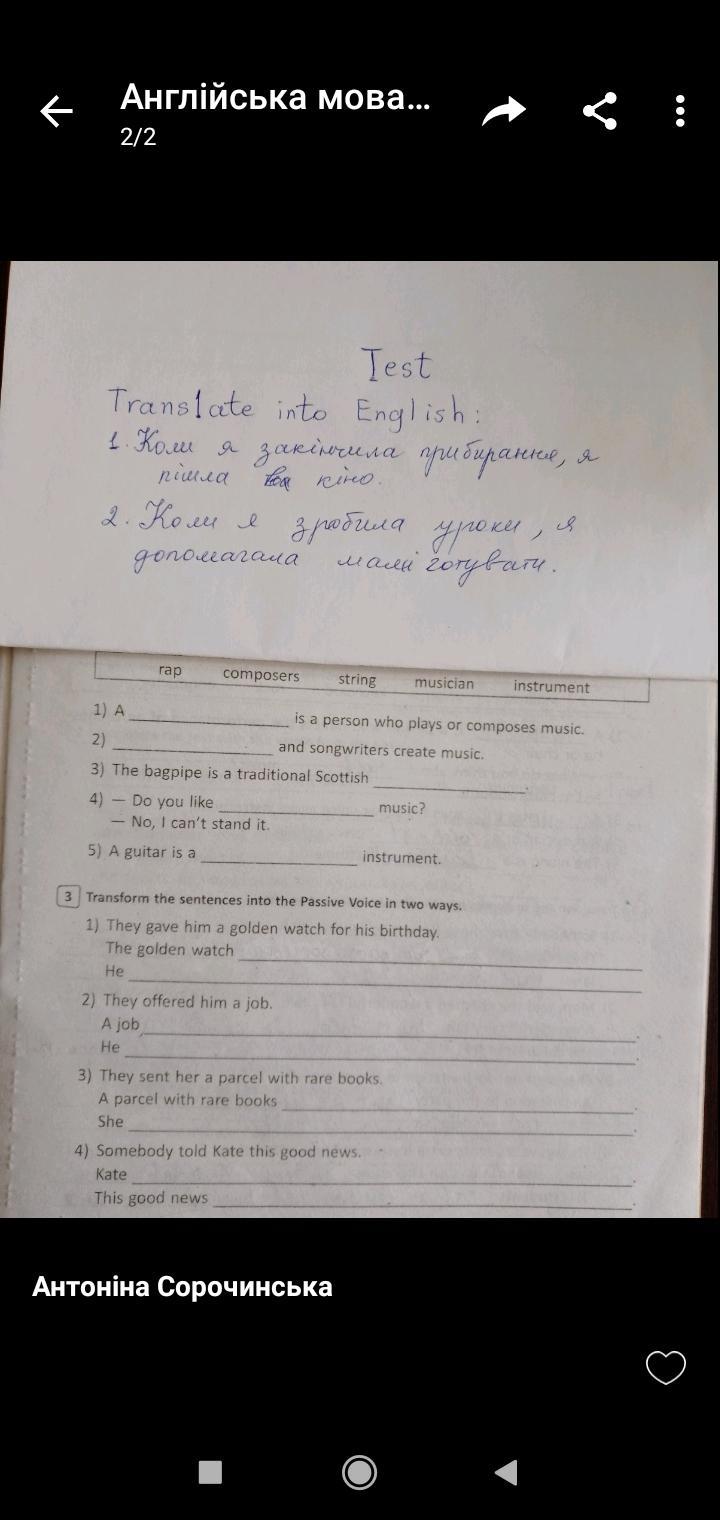 Англійська мова...
2/2
Test
Translate into English:
1. Коли я закінчила прибирання, я
пішла в кіно.
2. Коли я зробила уроки, я
допомагала мамі готувати.
rap composers string musician instrument
1) A ____ is a person who plays or composes music.
2) ____ and songwriters create music.
3) The bagpipe is a traditional Scottish ____.
4) — Do you like ____ music?
— No, I can't stand it.
5) A guitar is a ____ instrument.
3 Transform the sentences into the Passive Voice in two ways.
1) They gave him a golden watch for his birthday.
The golden watch ____
He ____
2) They offered him a job.
A job ____.
He ____.
3) They sent her a parcel with rare books.
A parcel with rare books ____.
She ____.
4) Somebody told Kate this good news.
Kate ____.
This good news ____.
Антоніна Сорочинська